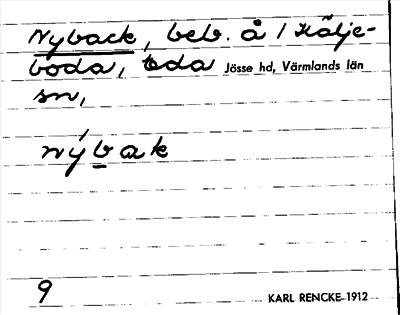 Nyback, beb. å 1 Kälje-
boda, Eda Jösse hd, Värmlands län
sn,
nýbak
9 KARL RENCKE 1912